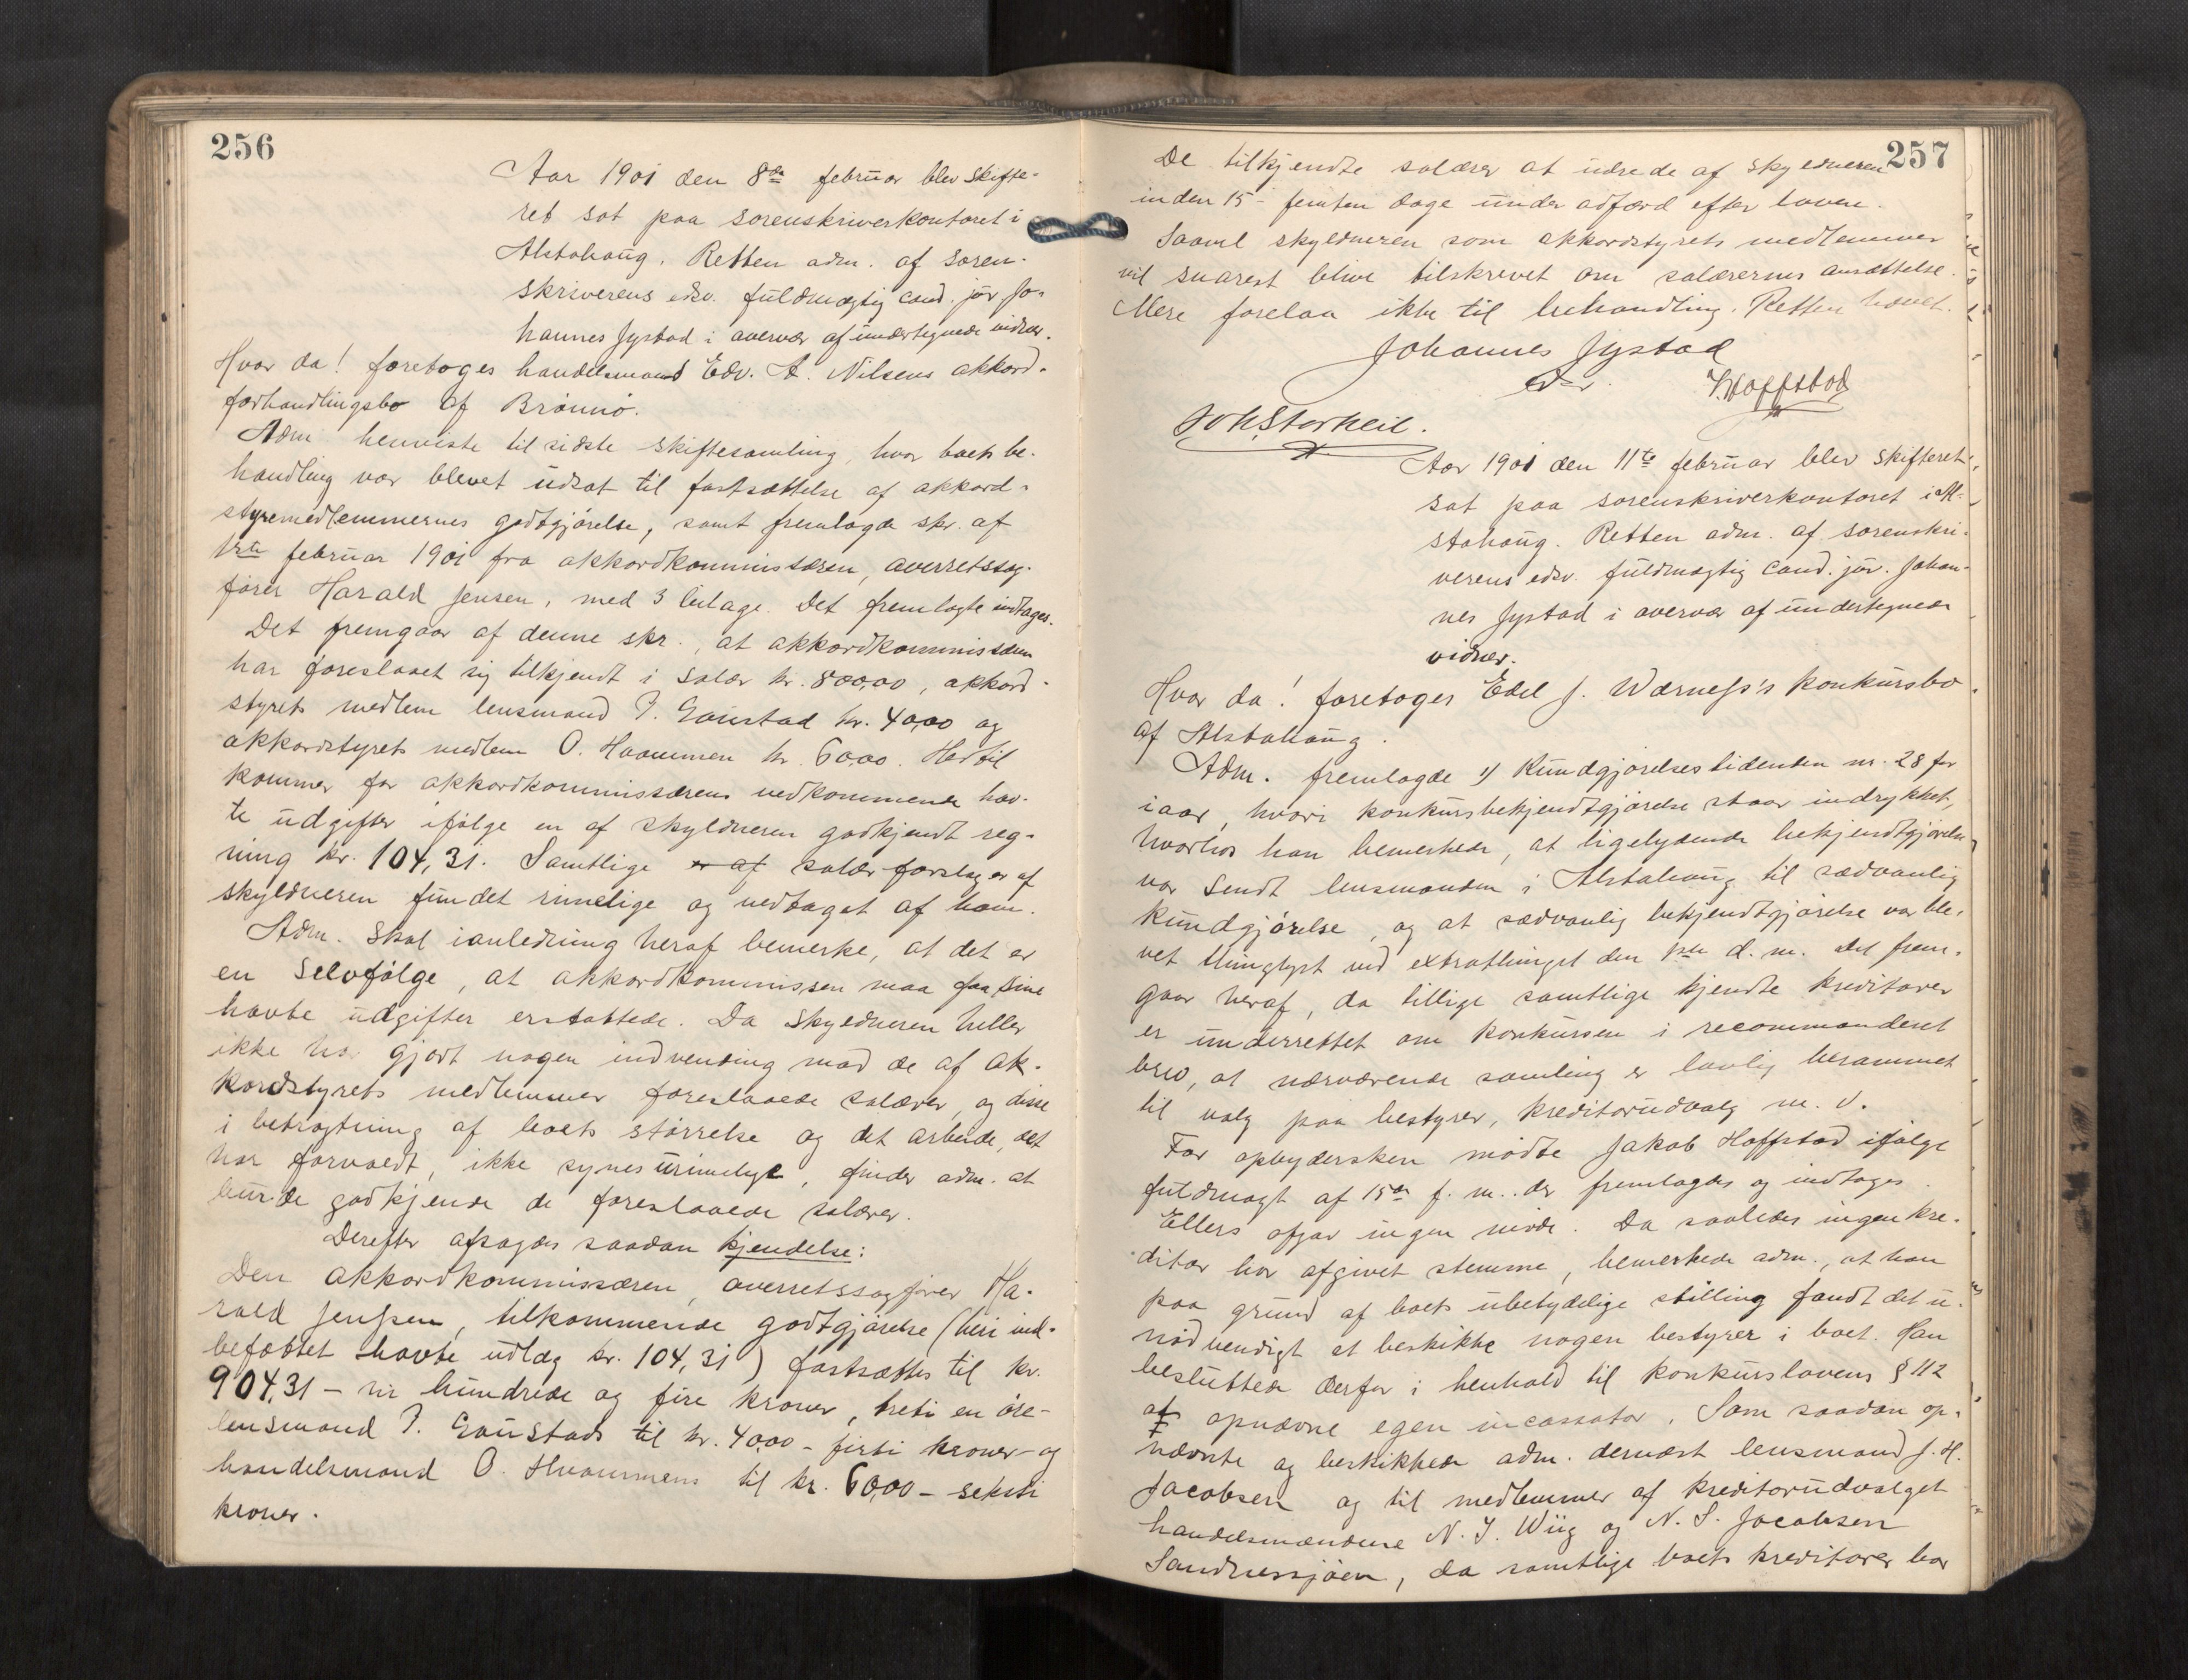 256
Aar 1901 den 8de februar blev skifte-
ret sat paa sorenskriverkontoret i
Alstahaug. Retten adm. af soren-
skriverens edsv. fuldmægtig cand. jur Jo-
hannes Jystad i overvær af undertegnede vidner.
Hvor da! foretoges handelsmand Edv. A. Nilsens akkord-
forhandlingsbo af Brønnø.
Adm. henviste til sidste skiftesamling, hvor boets be-
handling var blevet udsat til fastsættelse af akkord-
styremedlemmernes godtgjørelse, samt fremlagde skr. af
1ste februar 1901 fra akkordkommissæren, overretssag-
fører Harald Jensen, med 3 bilage. Det fremlagte indtages.
Det fremgaar af denne skr., at akkordkommissæren
har foreslaaet sig tilkjendt i salær kr. 800,00, akkord-
styrets medlem lensmand P. Gaustad kr. 40,00 og
akkordstyrets medlem O. Hvammen kr. 60,00. Hertil
kommer for akkordkommissærens vedkommende hav-
te udgifter ifølge en af skyldneren godkjendt reg-
ning kr. 104,31. Samtlige er af salær forslag er af
skyldneren fundet rimelige og vedtaget af ham.
Adm. skal i anledning heraf bemerke, at det er
en selvfølge, at akkordkommissen maa faa sine
havte udgifter erstattede. Da skyldneren heller
ikke har gjort nogen indvending mod de af ak-
kordstyrets medlemmer foreslaaede salærer, og disse
i betragtning af boets størrelse og det arbeide, det
har forvoldt, ikke synes urimelige, finder adm. at
burde godkjende de foreslaaede salærer.
Derefter afsagdes saadan kjendelse:
Den akkordkommissæren, overretssagfører Ha-
rald Jenssen, tilkommende godtgjørelse (heri ind-
befattet havte udlæg kr. 104,31) fastsættes til kr.
904,31 - ni hundrede og fire kroner, treti en øre -
lensmand P. Gaustads til kr. 40,00 - firti kroner - og
handelsmand O. Hvammens til kr. 60,00 - seksti
kroner.
257
De tilkjendte salærer at udrede af skyldneren
inden 15 - femten dage under adfærd efter loven.
Saavel skyldneren som akkordstyrets medlemmer
vil snarest blive tilskrevet om salærernes ansættelse.
Mere forelaa ikke til behandling. Retten hævet.
Johannes Jystad
edsv.
J. Hoffstad
Joh. Storheil.
Aar 1901 den 11te februar blev skifteret
sat paa sorenskriverkontoret i Al-
stahaug. Retten adm. af sorenskri-
verens edsv. fuldmægtig cand. jur. Johan-
nes Jystad i overvær af undertegnede
vidner.
Hvor da! foretoges Edel J. Wærness's konkursbo
af Alstahaug.
Adm. fremlagde 1) Kundgjørelsestidenden nr. 28 for
iaar, hvori konkursbekjendtgjørelse staar indrykket,
hvorhos han bemerkede, at ligelydende bekjendtgjørelse
var sendt lensmanden i Alstahaug til sædvanlig
kundgjørelse, og at sædvanlig bekjendtgjørelse var ble-
vet thinglyst ved extrathinget den 1ste d. m. Det frem-
gaar heraf, da tillige samtlige kjendte kreditorer
er underrettet om konkursen i recommanderet
brev, at nærværende samling er lovlig berammet
til valg paa bestyrer, kreditorudvalg m. v.
For opbydersken mødte Jakob Hoffstad ifølge
fuldmagt af 15de f. m. der fremlagdes og indtages.
Ellers afgav ingen møde. Da saaledes ingen kre-
ditor har afgivet stemme, bemerkede adm., at han
paa grund af boets ubetydelige stilling fandt det u-
nødvendigt at beskikke nogen bestyrer i boet. Han
besluttede derfor i henhold til konkurslovens § 112
at opnævne egen incassator. Som saadan op-
nævnte og beskikkede adm. dernæst lensmand J. H.
Jacobsen og til medlemmer af kreditorudvalget
handelsmændene N. J. Wiig og N. S. Jacobsen
Sandnessjøen, da samtlige boets kreditorer bor